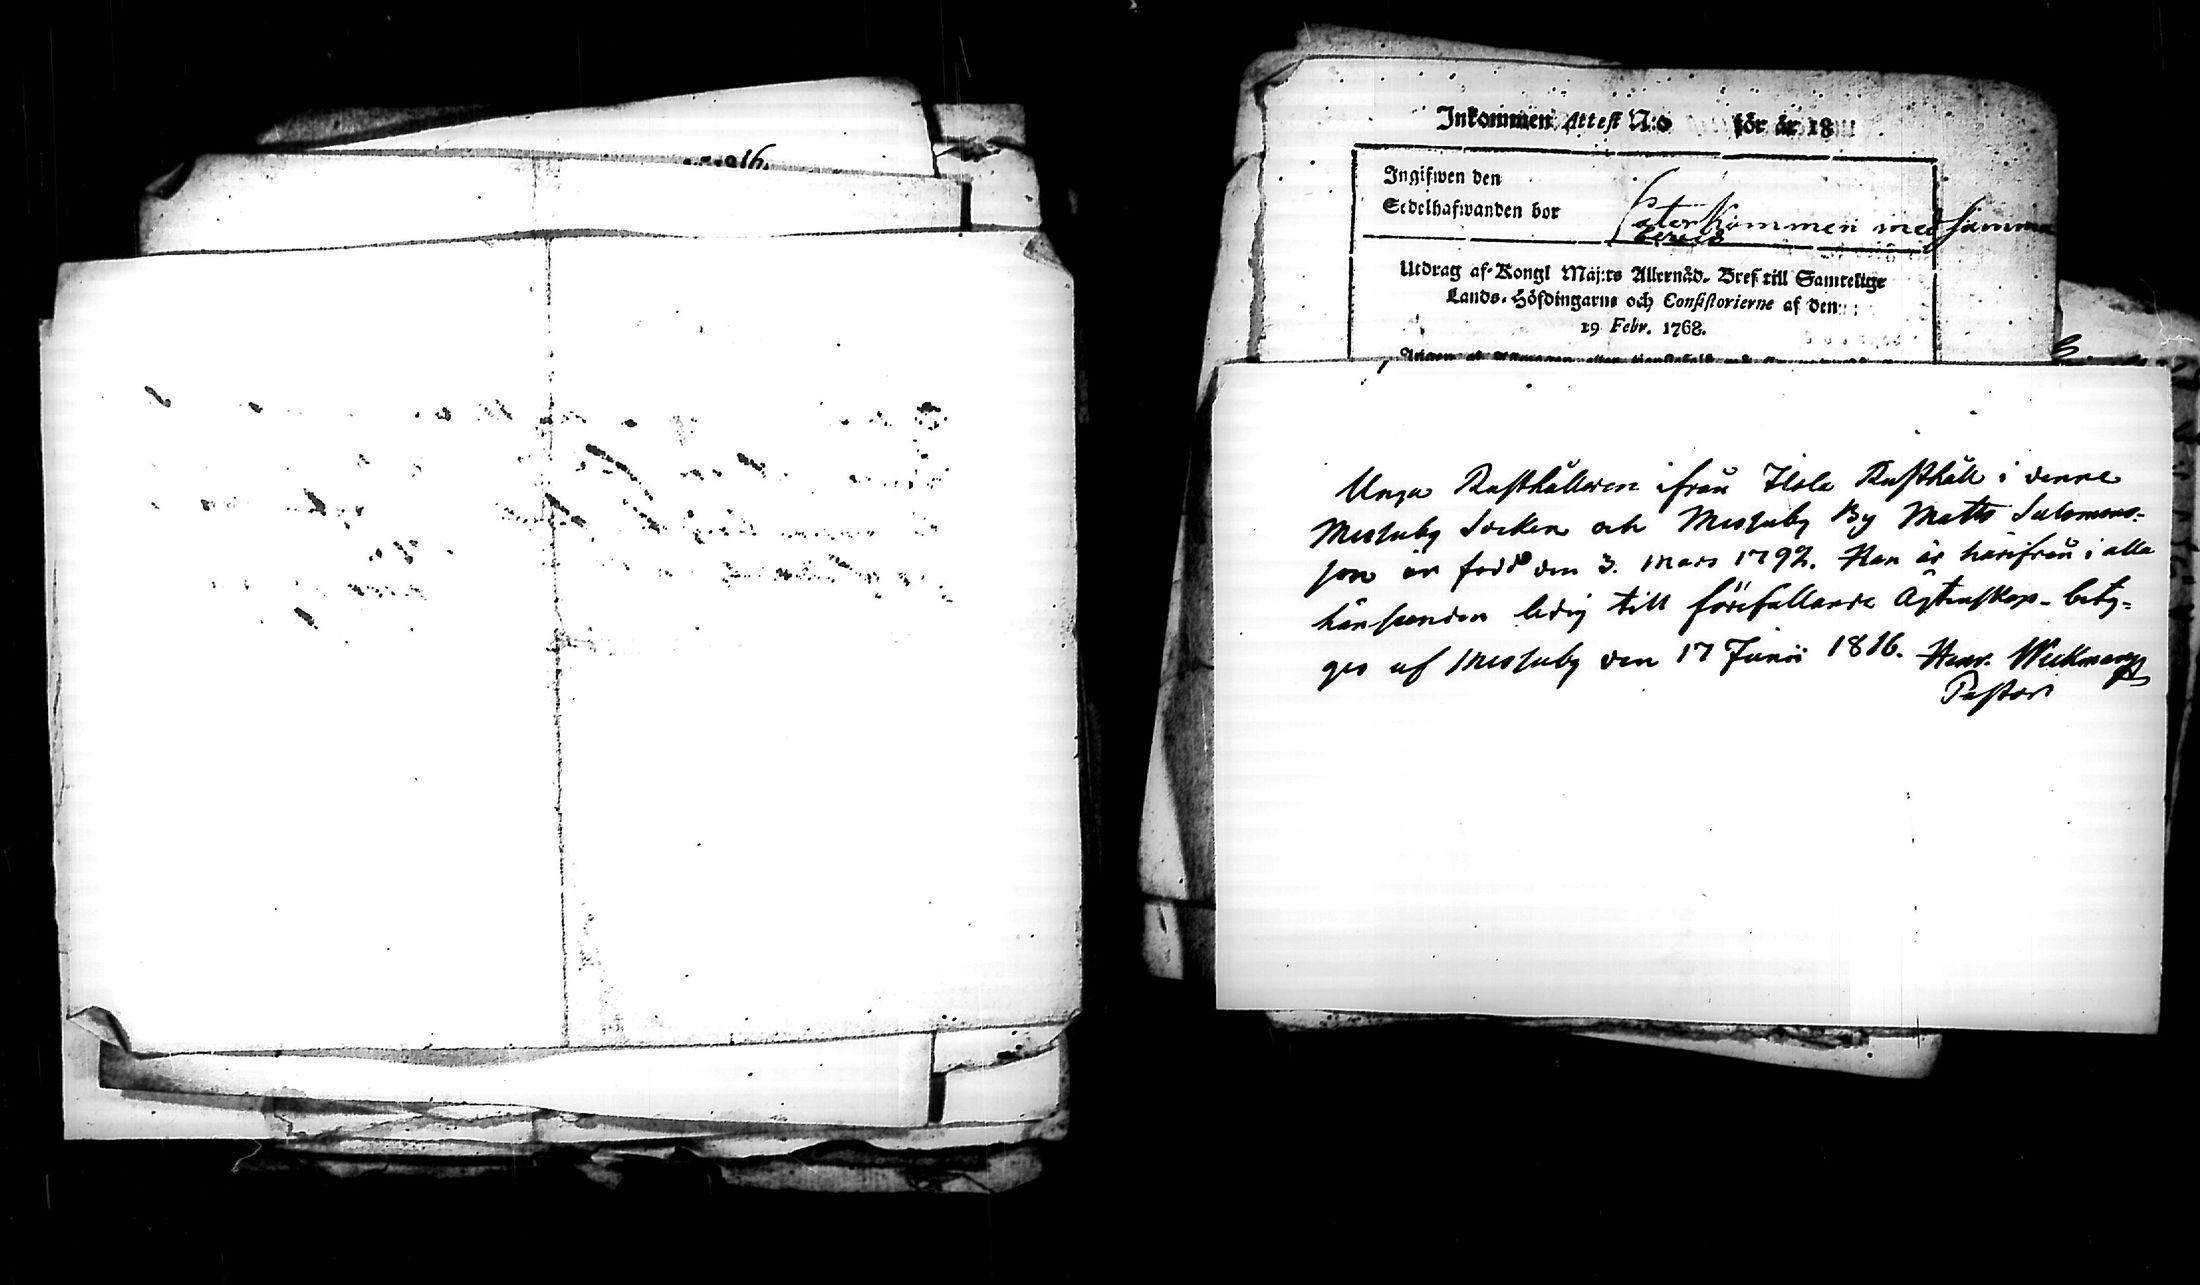 Inkommen Attest N:o för år 18
Ingifwen den
Sedelhafwanden bor
Återkommen med samma
bevis
Utdrag af Kongl Maj:ts Allernåd. Bref till Samtelige
Lands-Höfdingarne och Consistorierne af den
19 Febr. 1768.
Unga Rusthållaren ifrån Ilola Rusthåll i denne
Messuby Socken och Messuby By Matts Salomons-
son är född den 3. Mars 1792. Han är härifrån i alla
hänseenden ledig till förefallande Ägtenskap- bety-
ges af Messuby den 17 Junii 1816. Henr. Weckman
Pastor